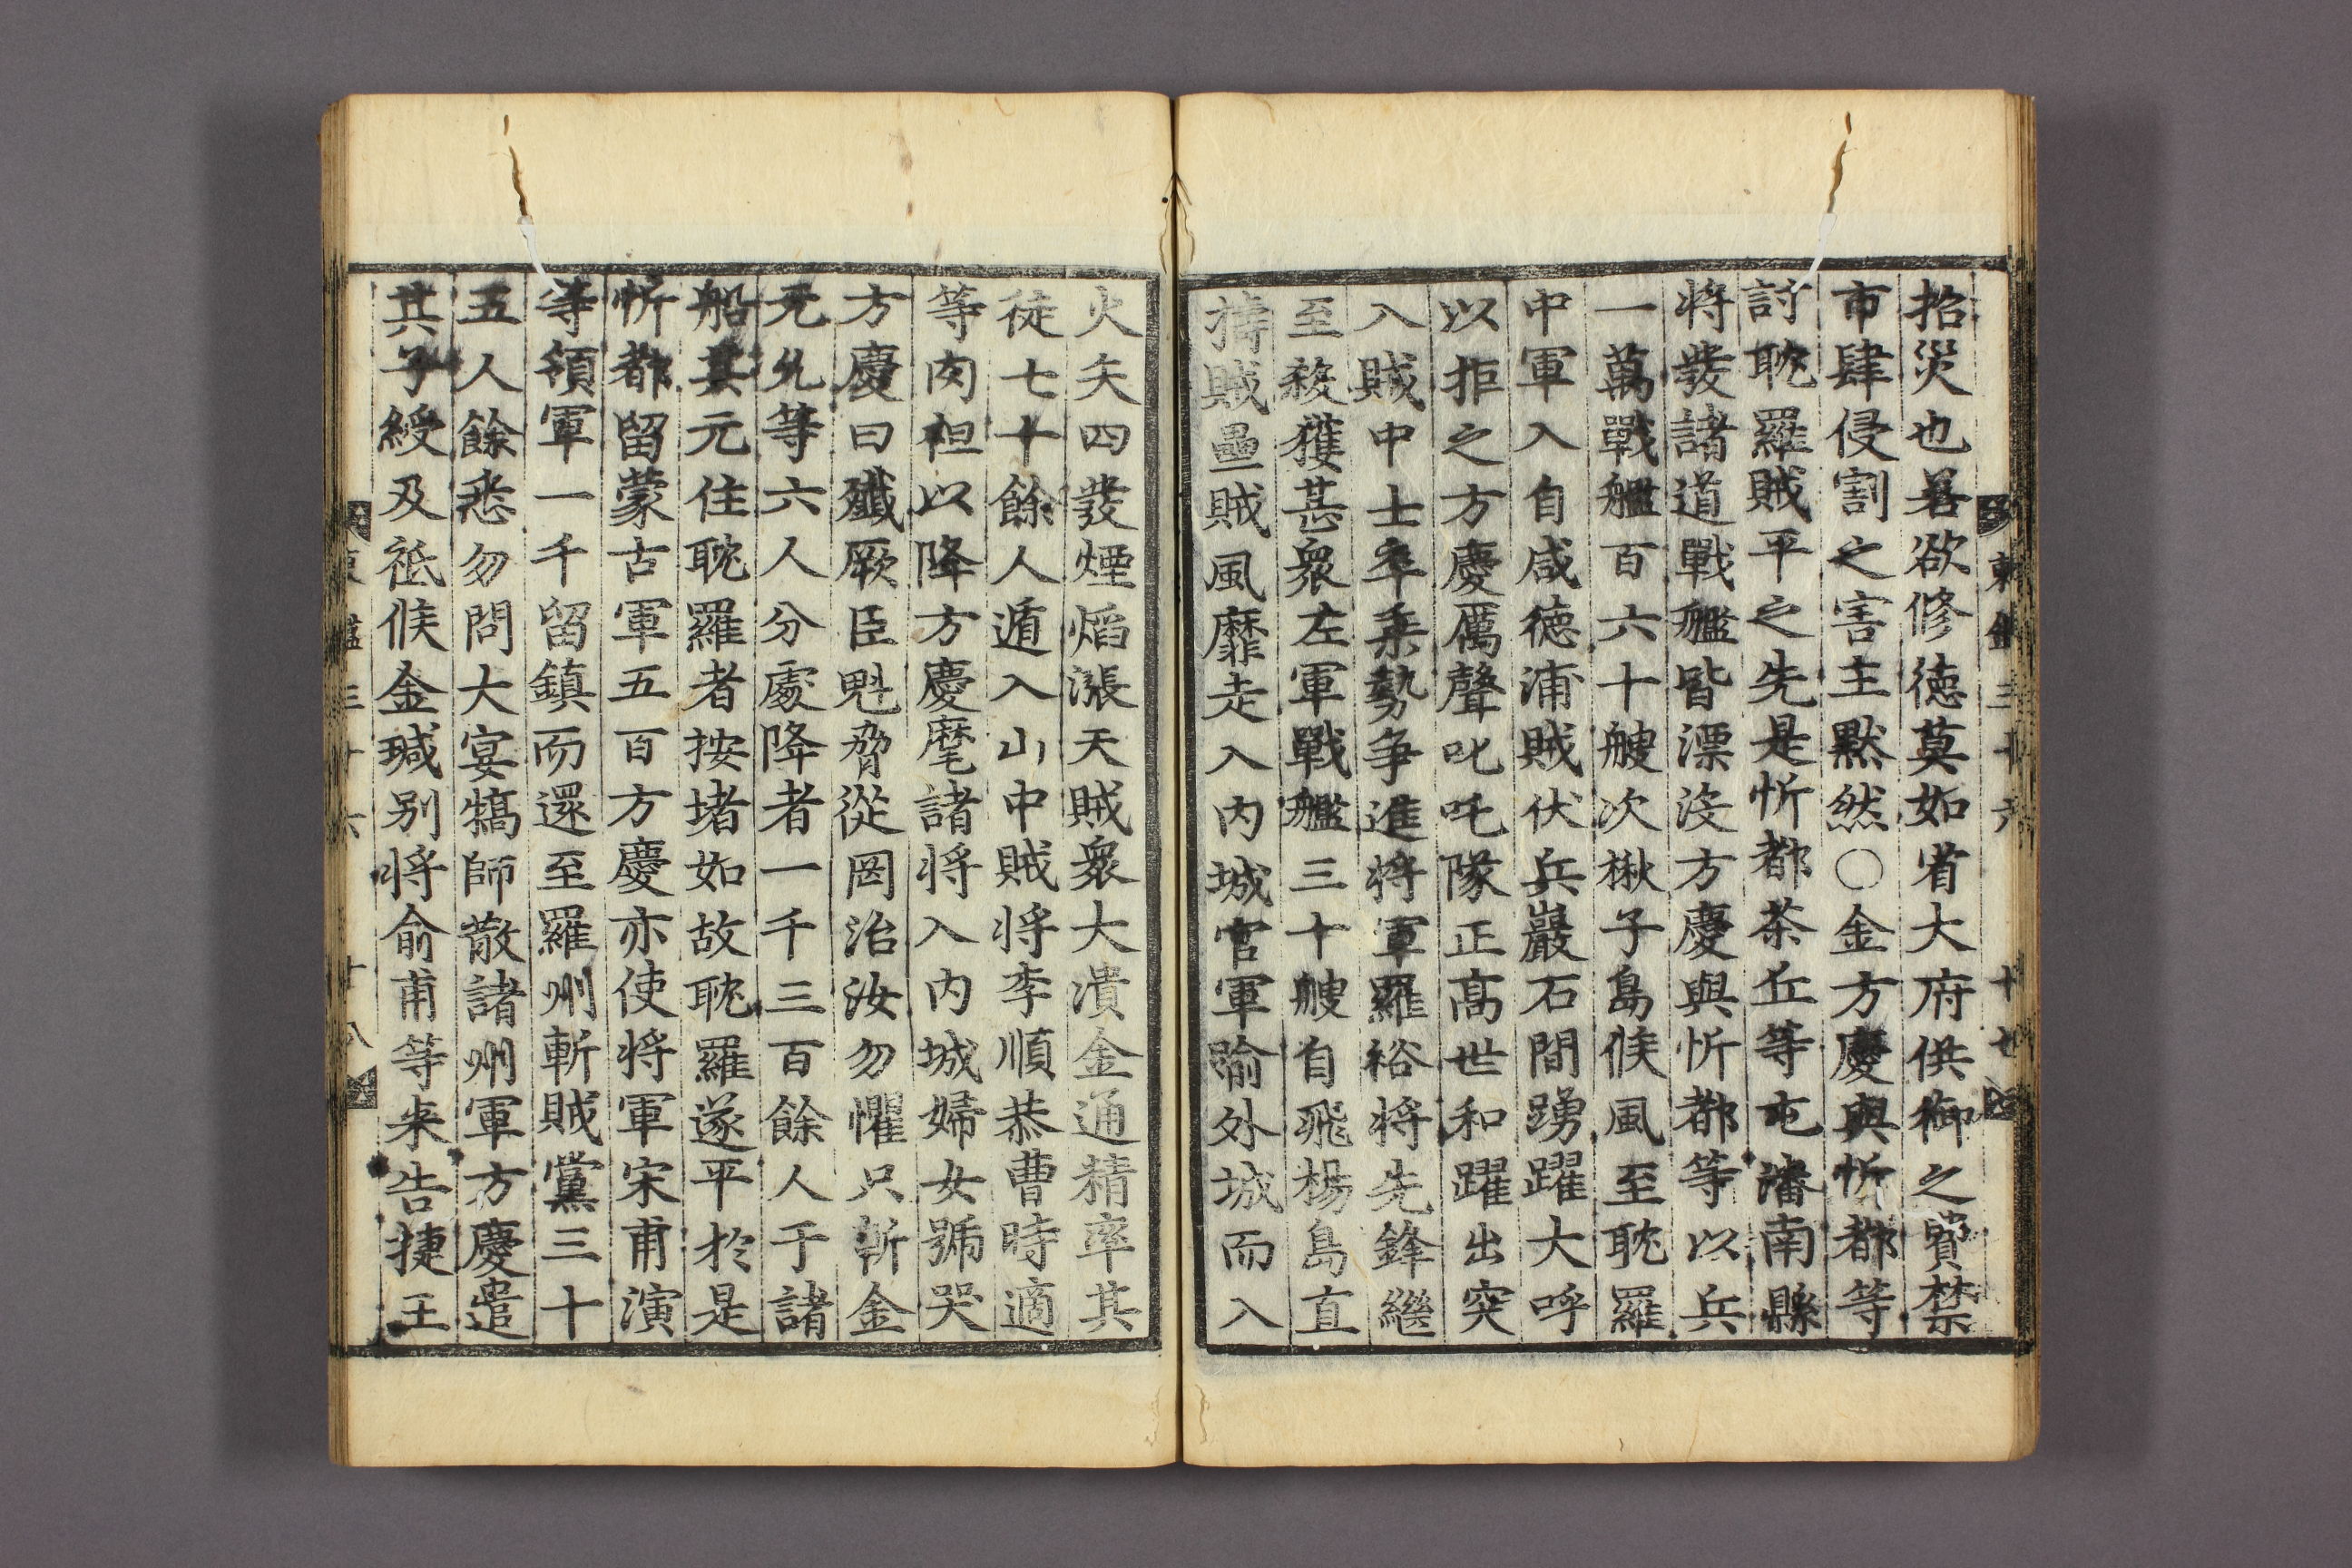 招災也若欲修德莫如省大府供御之費禁
市肆侵割之害主默然○金方慶與忻都等
討耽羅賊平之先是忻都茶丘等屯潘南縣
將發諸道戰艦皆漂沒方慶與忻都等以兵
一萬戰艦百六十艘次楸子島候風至耽羅
中軍入自咸德浦賊伏兵巖石間踴躍大呼
以拒之方慶厲聲叱吒隊正高世和躍出突
入賊中士卒乘勢爭進將軍羅裕將先鋒繼
至殺獲甚衆左軍戰艦三十艘自飛楊島直
擣賊壘賊風靡走入內城官軍踰外城而入
火矢四發煙焰漲天賊衆大潰金通精率其
徒七十餘人遁入山中賊將李順恭曹時適
等肉袒以降方慶麾諸將入內城婦女號哭
方慶曰殲厥臣魁脅從罔治汝勿懼只斬金
元允等六人分處降者一千三百餘人于諸
船其元住耽羅者按堵如故耽羅遂平於是
忻都留蒙古軍五百方慶亦使將軍宋甫演
等領軍一千留鎭而還至羅州斬賊黨三十
五人餘悉勿問大宴犒師散諸州軍方慶遣
其子綬及祗候金瑊別將俞甫等來告捷王
東鑑三十六 十八